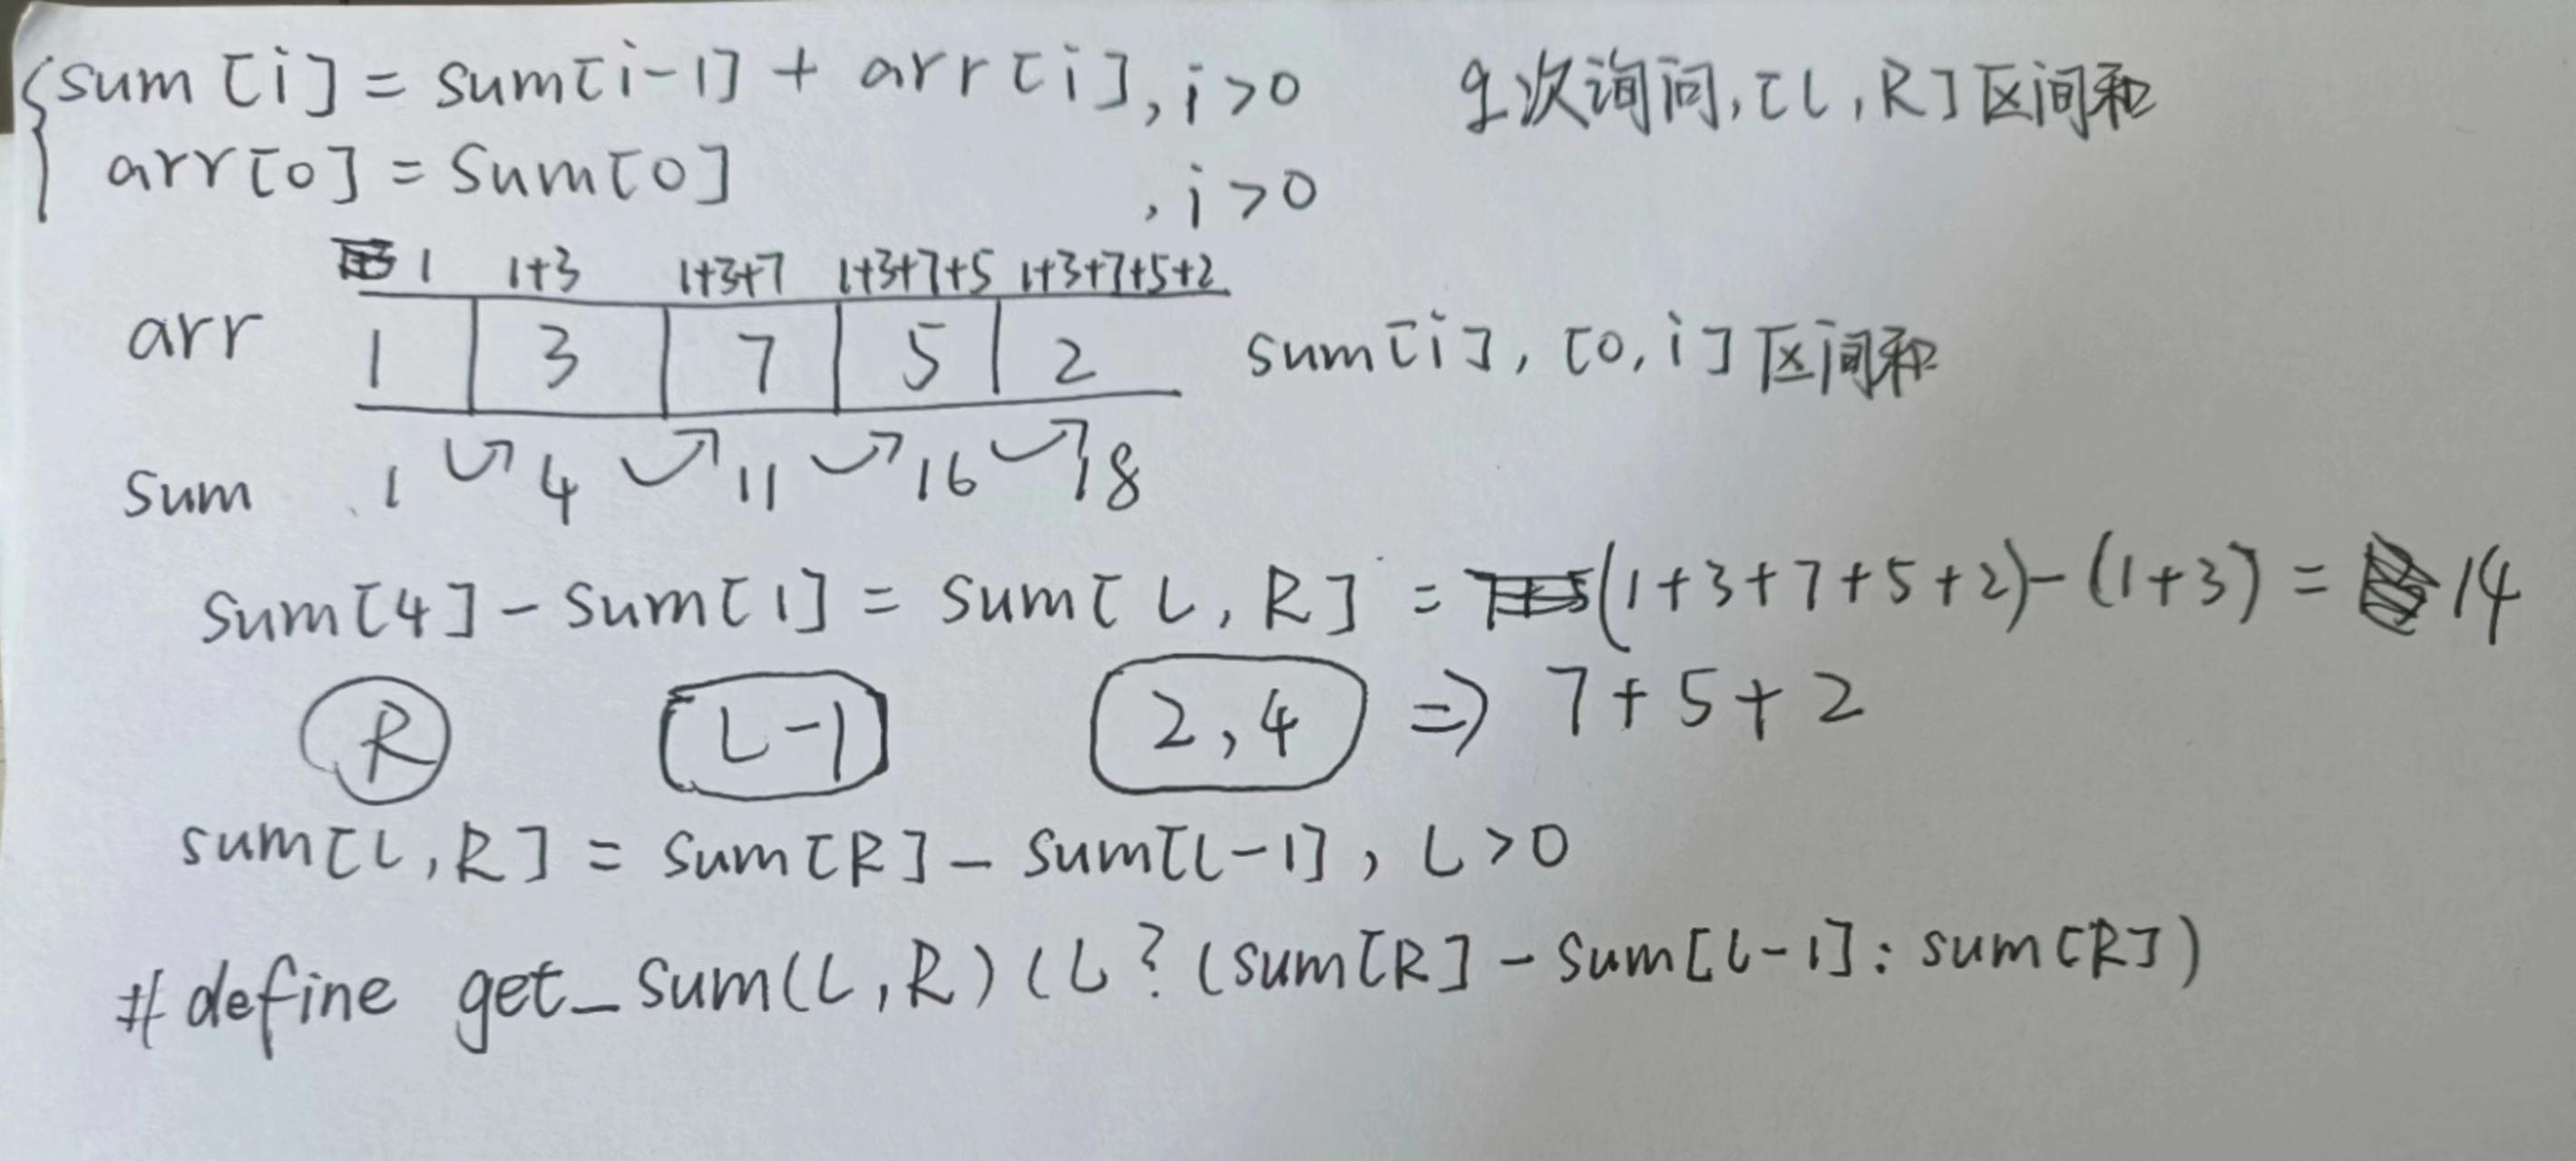 sum[i] = sum[i-1] + arr[i], i>0
q次询问,[L,R]区间和
arr[0] = sum[0] , i>0
1 1+3 1+3+7 1+3+7+5 1+3+7+5+2
arr 1 3 7 5 2
sum[i], [0,i]区间和
sum 1 4 11 16 18
sum[4] - sum[1] = sum[L,R] = (1+3+7+5+2)-(1+3) = 14
R L-1 2,4 => 7+5+2
sum[L,R] = sum[R] - sum[L-1], L>0
#define get_sum(L,R) (L?(sum[R]-sum[L-1]:sum[R])